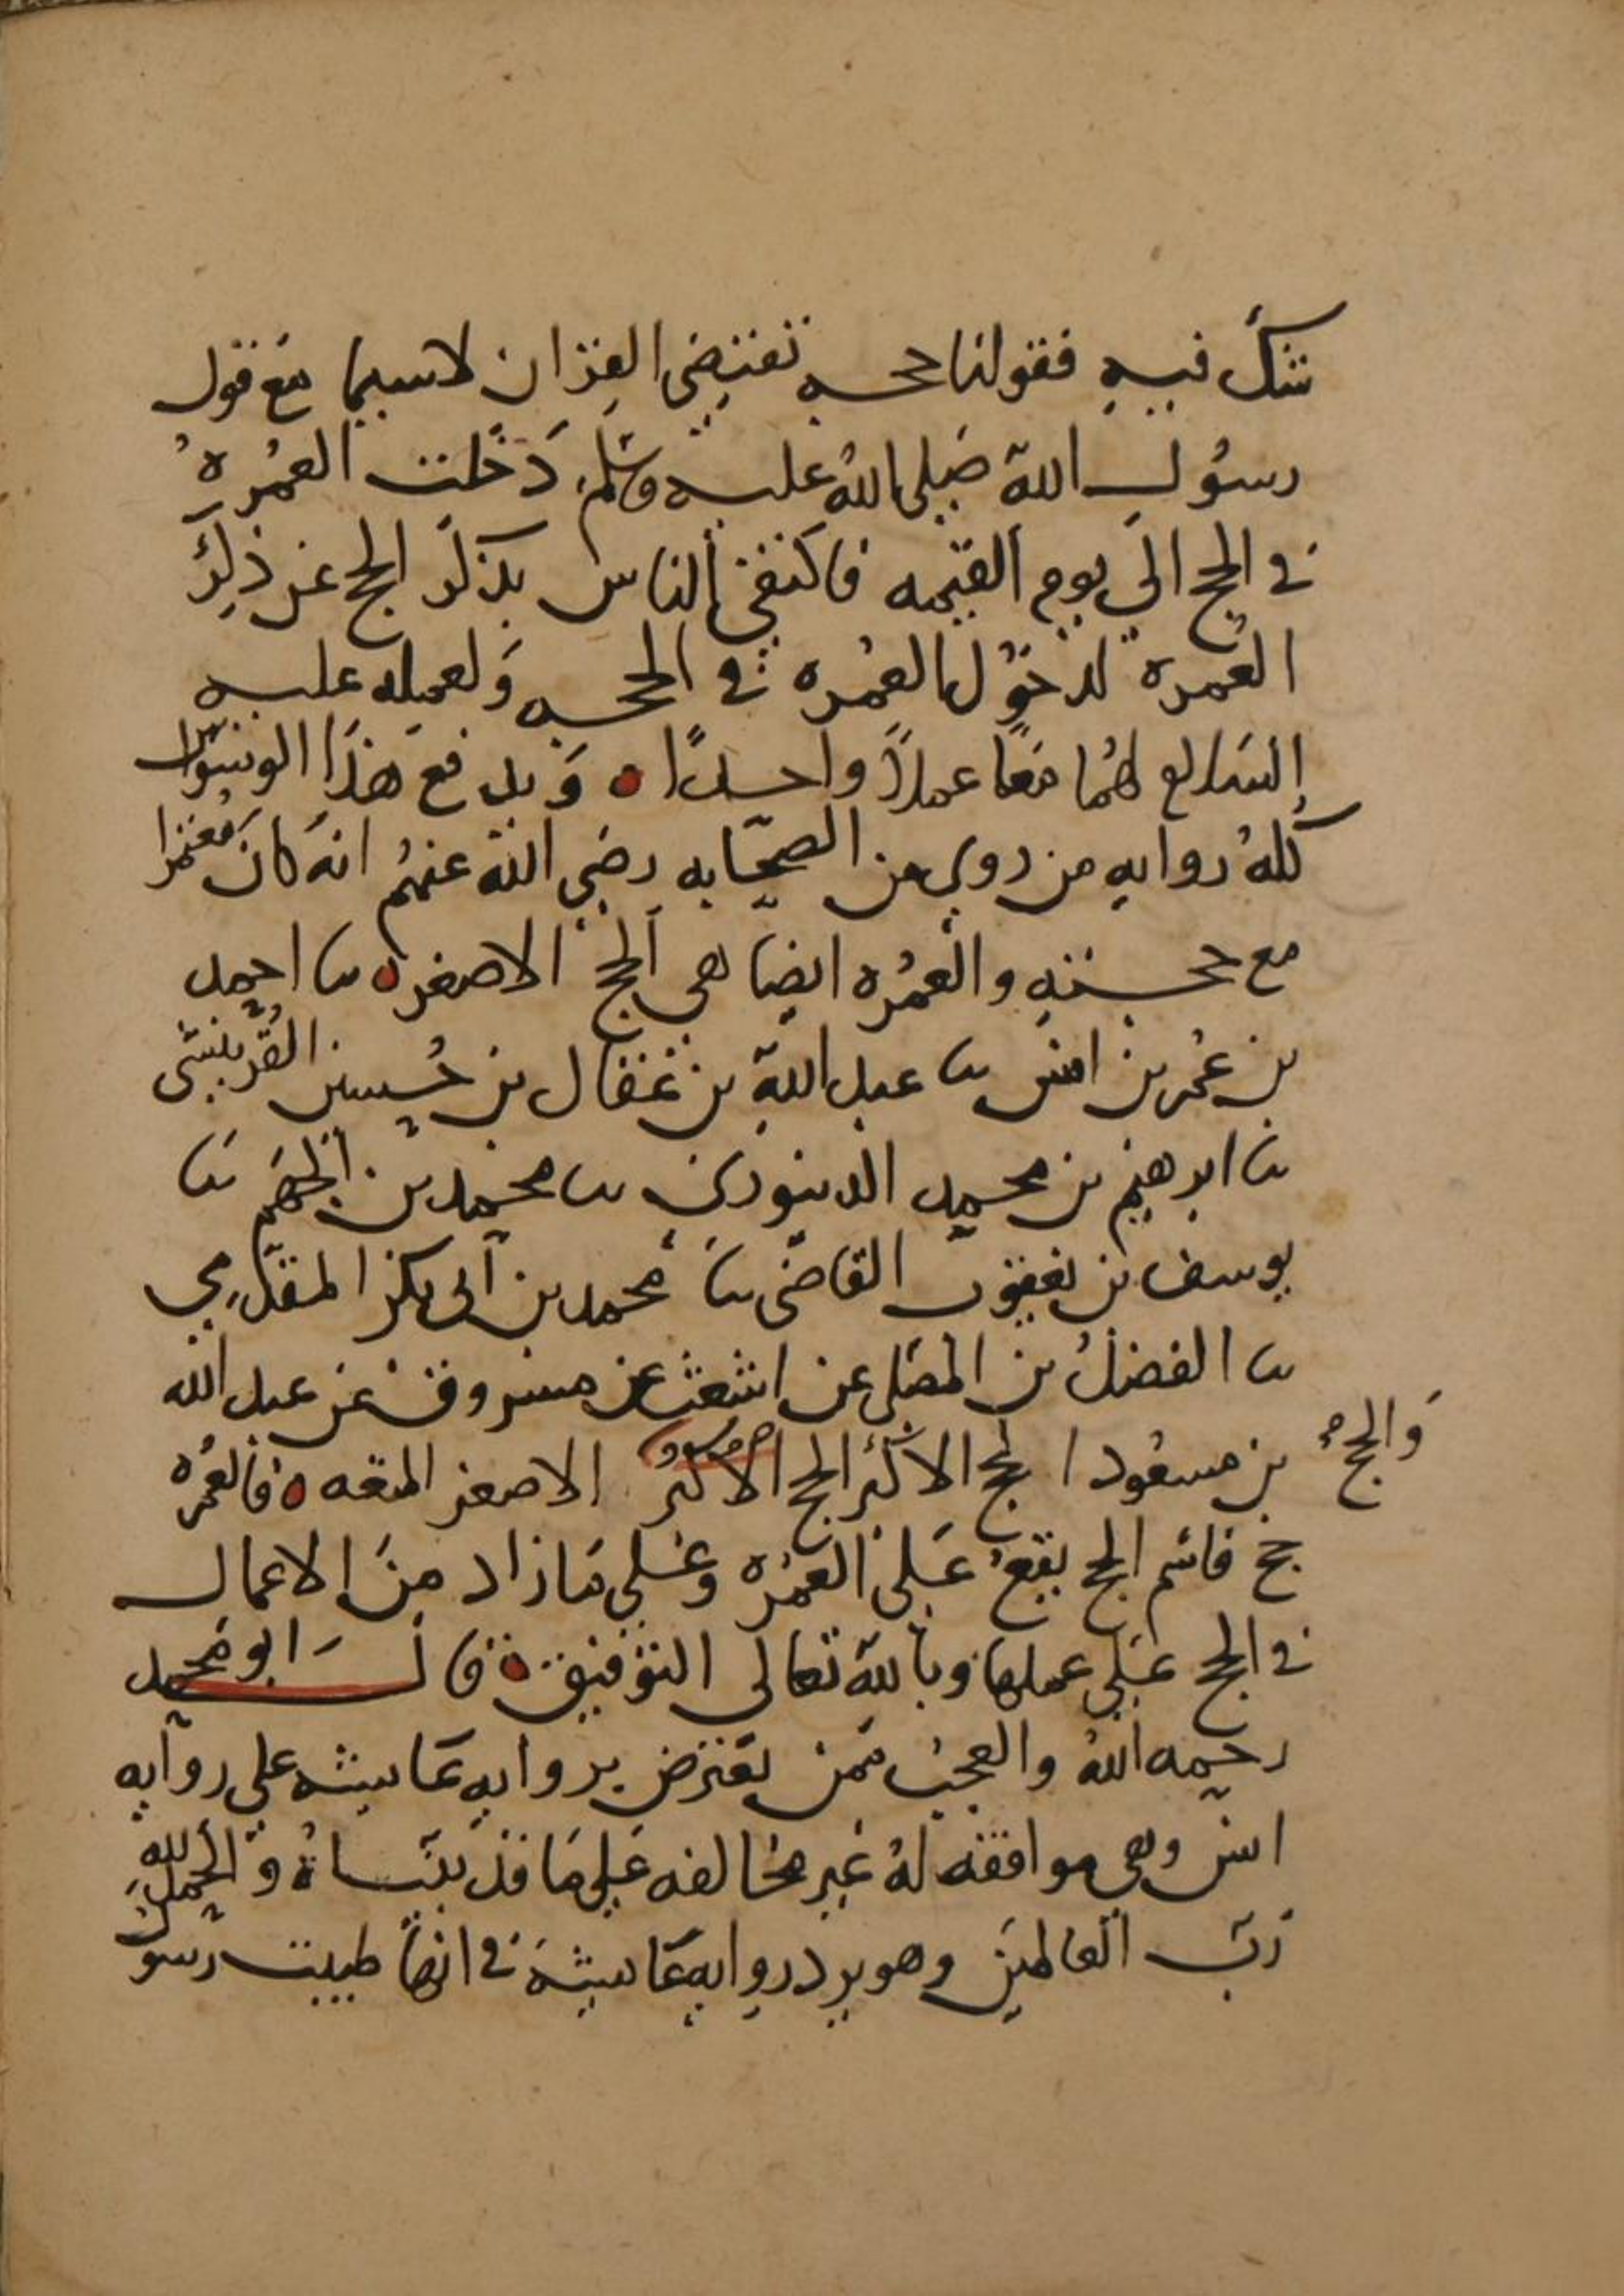 شك فيه فقولنا حجه تقتضي القران لا سيما مع قول
رسول الله صلى الله عليه وسلم دخلت العمرة
في الحج الى يوم القيمه فاكتفى الناس بذكر الحج عن ذكر
العمرة لدخول العمره في الحجه ولعمله عليه
السلام لهما معا عملاً واحداً ه ويدفع هذا
كله روايه من روى من الصحابه رضي الله عنهم انه كان معتمرا
مع حجته والعمره ايضا هي الحج الاصغر ه نا احمد
بن عمر بن انس نا عبد الله بن عقال بن حسين القرينشي
نا ابرهيم بن محمد الدينوري نا محمد بن الجهم نا
يوسف بن يعقوب القاضي نا محمد بن ابي بكر المقدمي
نا الفضل بن عن اشعث عن مسروق عن عبد الله
بن مسعود الحج الاكبر الحج الاكبر الاصغر المتعه ه فالعمره
والحج
حج فاسم الحج يقع على العمره وعلى ما زاد من الاعمال
في الحج على عملها وبالله تعالى التوفيق ه قال ابو محمد
رحمه الله والعجب ممن يعترض بروايه عايشه على روايه
انس وهي موافقه له غير مخالفه على ما قد بيناه والحمد لله
رب العالمين وهو يرد روايه عايشة في انها طيبت رسول